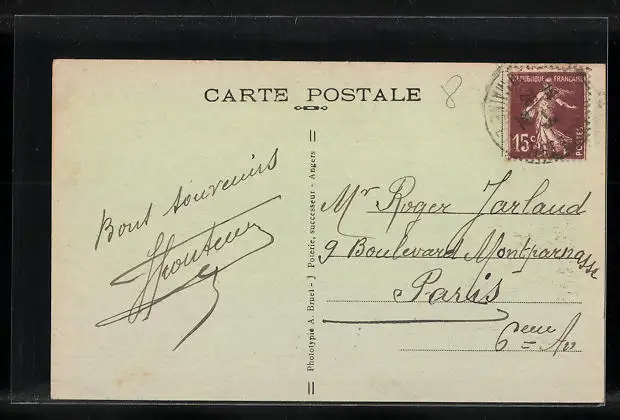 CARTE POSTALE
8
REPUBLIQUE FRANÇAISE
15c
POSTES
Bons souvenirs
Phototypie A. Bruel - J. Poterie, successeur - Angers
Mr Roger Jarlaud
9 Boulevard Montparnasse
Paris
6eme Arr